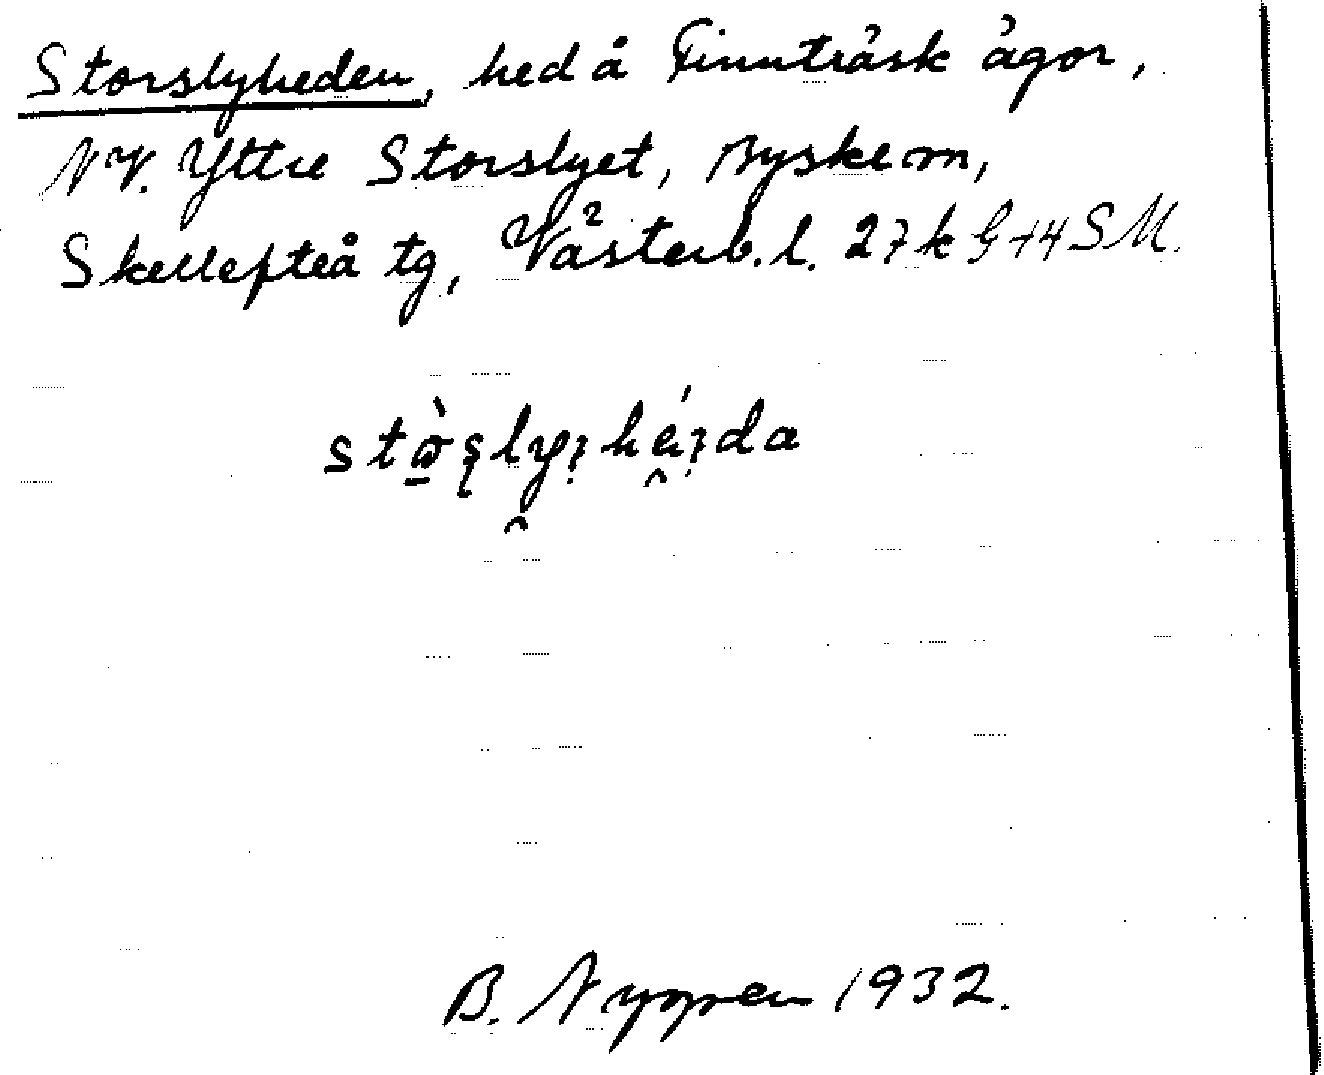 Storslyheden, hed å Finnträsk ägor,
NV. Yttre Storslyet, Byske sn,
Skellefteå tg, Västerb. l. 27 k
B. Nygren 1932.